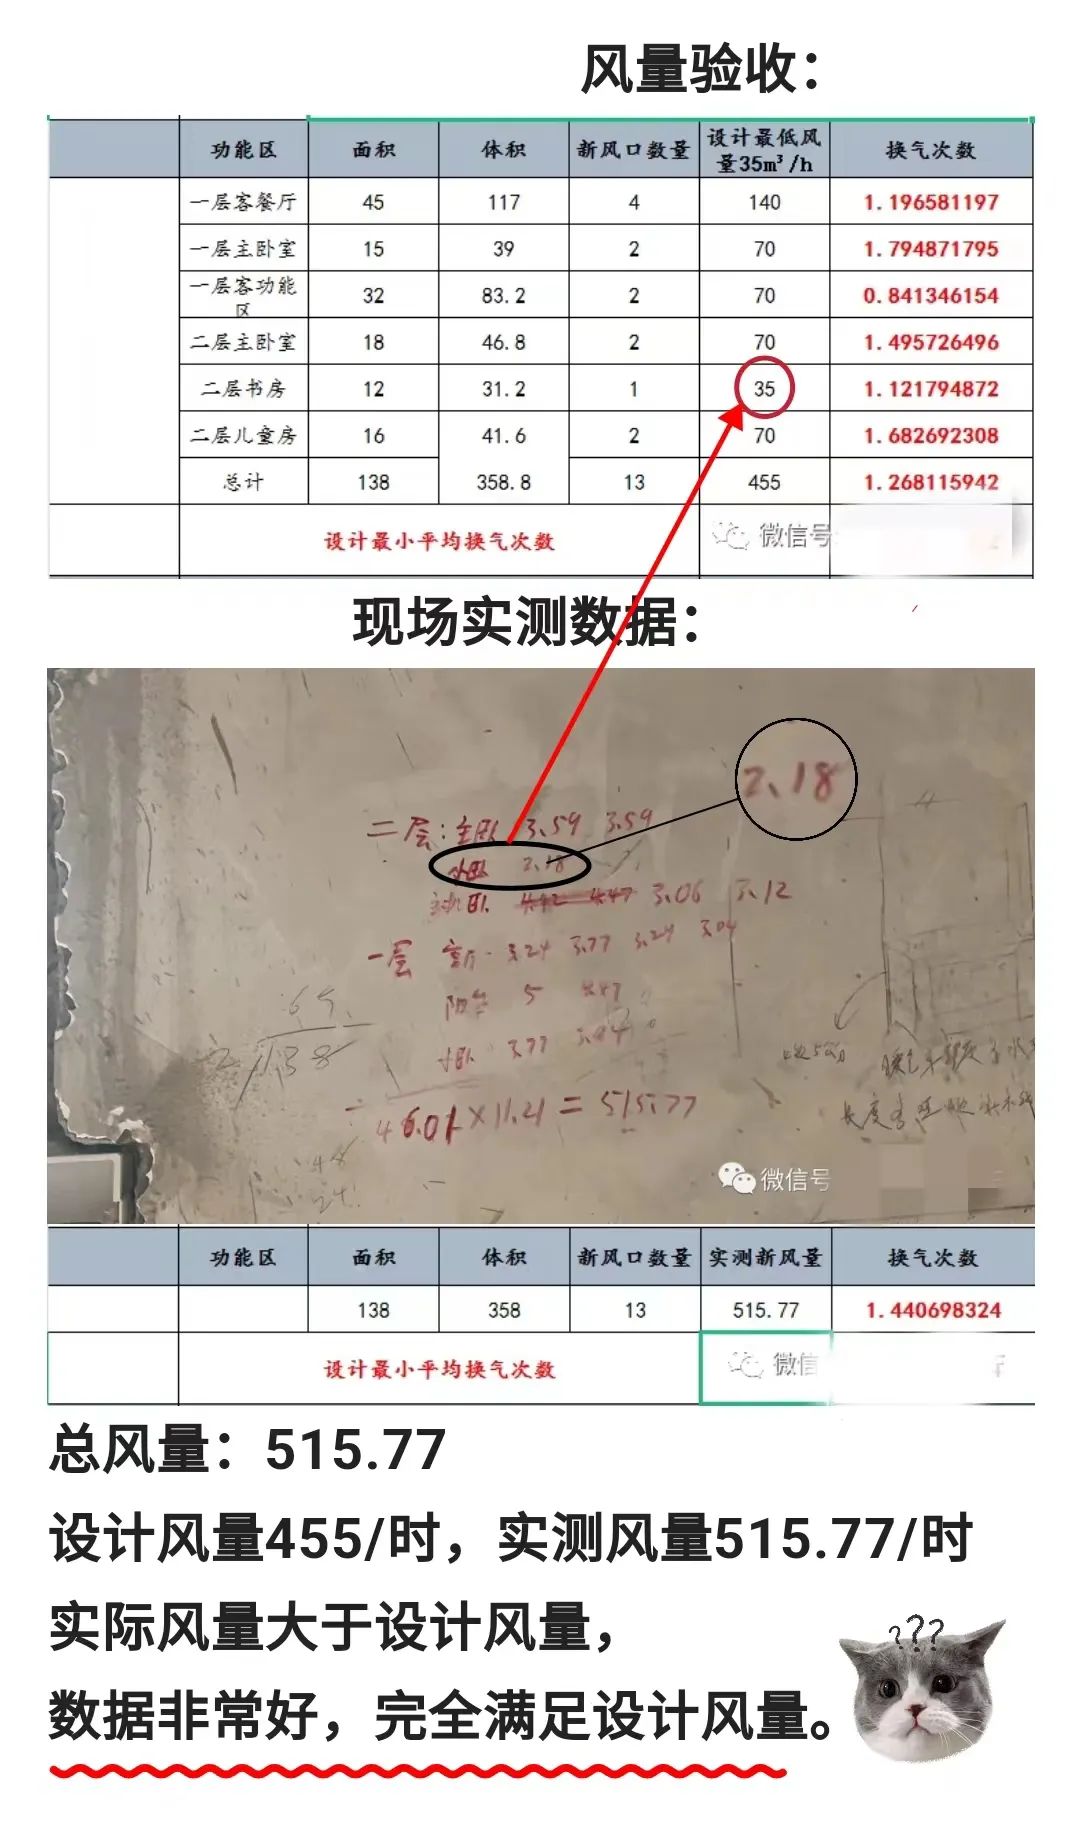 风量验收：
功能区 面积 体积 新风口数量 设计最低风量35m³/h 换气次数
一层客餐厅 45 117 4 140 1.196581197
一层主卧室 15 39 2 70 1.794871795
一层客功能区 32 83.2 2 70 0.841346154
二层主卧室 18 46.8 2 70 1.495726496
二层书房 12 31.2 1 35 1.121794872
二层儿童房 16 41.6 2 70 1.682692308
总计 138 358.8 13 455 1.268115942
设计最小平均换气次数
微信号:
现场实测数据：
2.18
二层：主卧 3.59 3.59
小卧 2.18
卧 3.06 3.12
一层 客厅 3.24 3.77 3.24 3.04
阳台 5
卧 3.77
65
2 138
46.01×11.21=515.77
48
24
微信号
功能区 面积 体积 新风口数量 实测新风量 换气次数
138 358 13 515.77 1.440698324
设计最小平均换气次数
微信
总风量：515.77
设计风量455/时，实测风量515.77/时
实际风量大于设计风量，
数据非常好，完全满足设计风量。
???